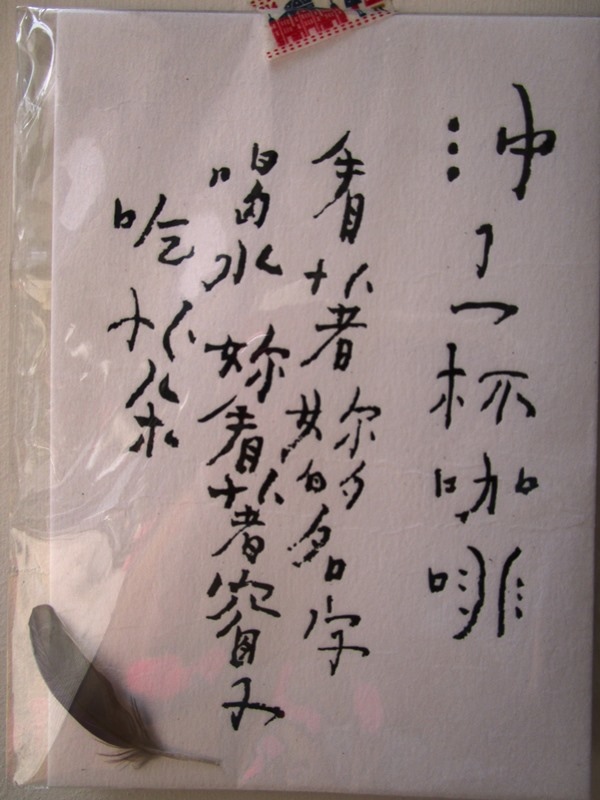 沖了一杯咖啡
看著妳的名字
喝水 妳看著窗
吃茶